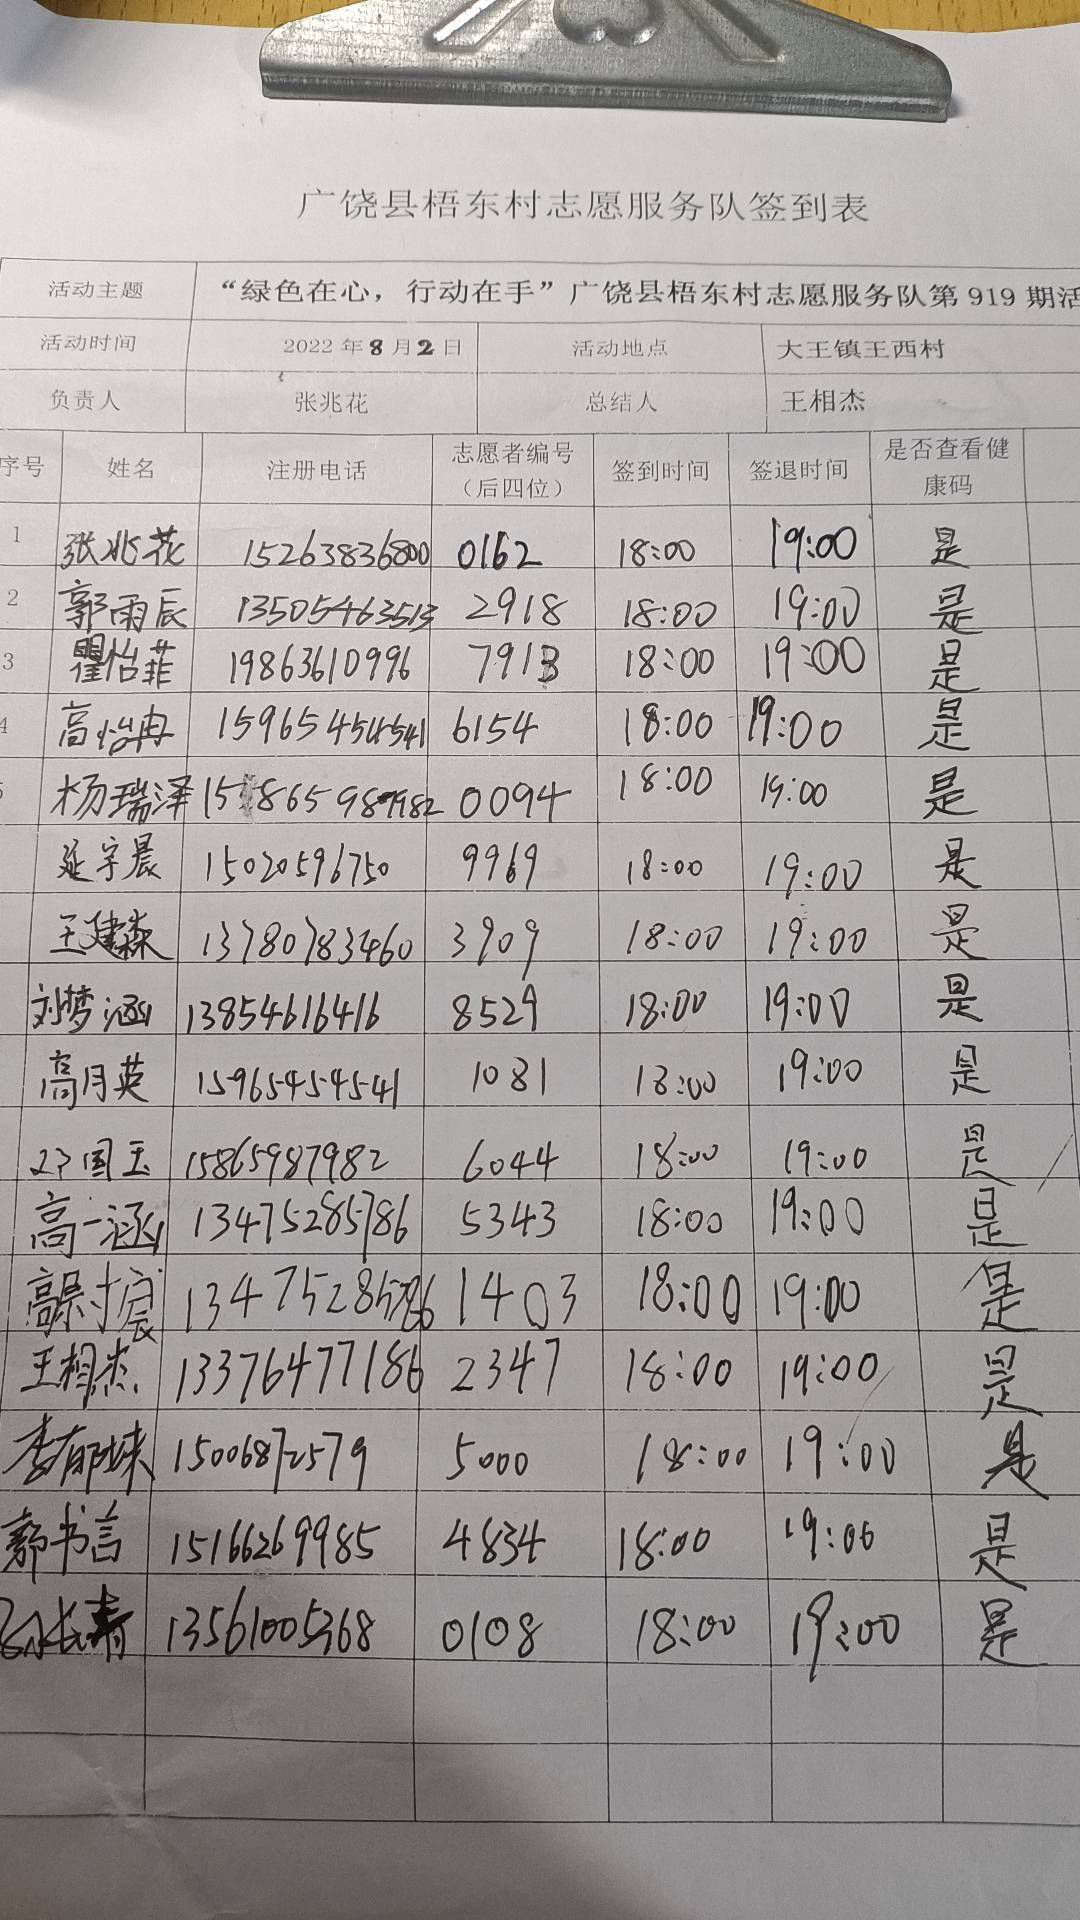 广饶县梧东村志愿服务队签到表
活动主题 “绿色在心，行动在手”广饶县梧东村志愿服务队第 919 期活
活动时间 2022 年 8 月 2 日 活动地点 大王镇王西村
负责人 张兆花 总结人 王相杰
序号 姓名 注册电话 志愿者编号（后四位） 签到时间 签退时间 是否查看健康码
1 张兆花 15263836800 0162 18:00 19:00 是
2 郭雨辰 13505463513 2918 18:00 19:00 是
3 瞿怡菲 19863610996 7913 18:00 19:00 是
4 高怡冉 15965454541 6154 18:00 19:00 是
5 杨瑞泽 15865987982 0094 18:00 19:00 是
延宇晨 15020596750 9969 18:00 19:00 是
王建森 13780783460 3909 18:00 19:00 是
刘梦涵 13854616416 8529 18:00 19:00 是
高月英 15965454541 1081 18:00 19:00 是
国玉 15865987982 6044 18:00 19:00 是
高一涵 13475285786 5343 18:00 19:00 是
高 13475285786 1403 18:00 19:00 是
王相杰 13376477186 2347 18:00 19:00 是
李 15006872579 5000 18:00 19:00 是
郭书言 15166269985 4834 18:00 19:00 是
长青 13561005368 0108 18:00 19:00 是